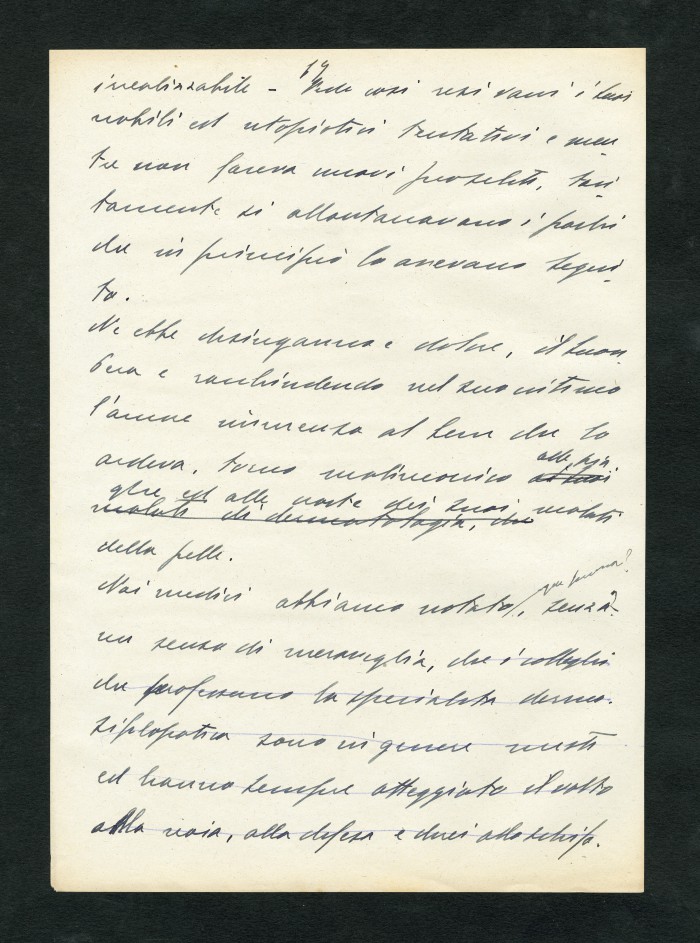 14
irrealizzabile - Vide così resi vani i suoi
nobili ed utopistici tentativi e men
tre non faceva nuovi proseliti, taci
tamente si allontanavano i pochi
che in principio lo avevano segui
to.
Ne ebbe disinganno e dolore, il buon
e racchiudendo nel suo intimo
l'amore immenso al bene che lo
ardeva, tornò malinconico ai suoi
alle
ed alle dei suoi malati
malati di dermatologia, che
della pelle.
Noi medici abbiamo notato, senza
un senso di meraviglia, che i colleghi
che professano la specialità dermo-
sifilopatica sono in genere mesti
ed hanno sempre atteggiato il volto
alla noia, alla difesa e direi allo schifo.